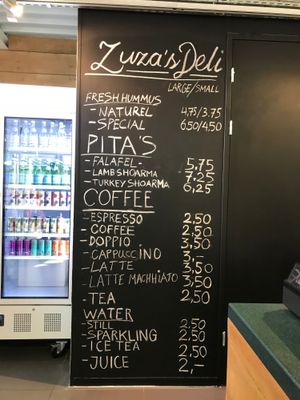 Zuza's Deli
LARGE/SMALL
FRESH HUMMUS
- NATUREL 4.75/3.75
- SPECIAL 6.50/4.50
PITA'S
- FALAFEL - 5.75
- LAMB SHOARMA 7.25
- TURKEY SHOARMA 6,25
COFFEE
- ESPRESSO 2,50
- COFFEE 2,50
- DOPPIO 3,50
- CAPPUCCINO 3,-
- LATTE 3,50
- LATTE MACHHIATO 3,50
- TEA 2,50
WATER
- STILL 2,50
- SPARKLING 2,50
- ICE TEA 2,50
- JUICE 2,-